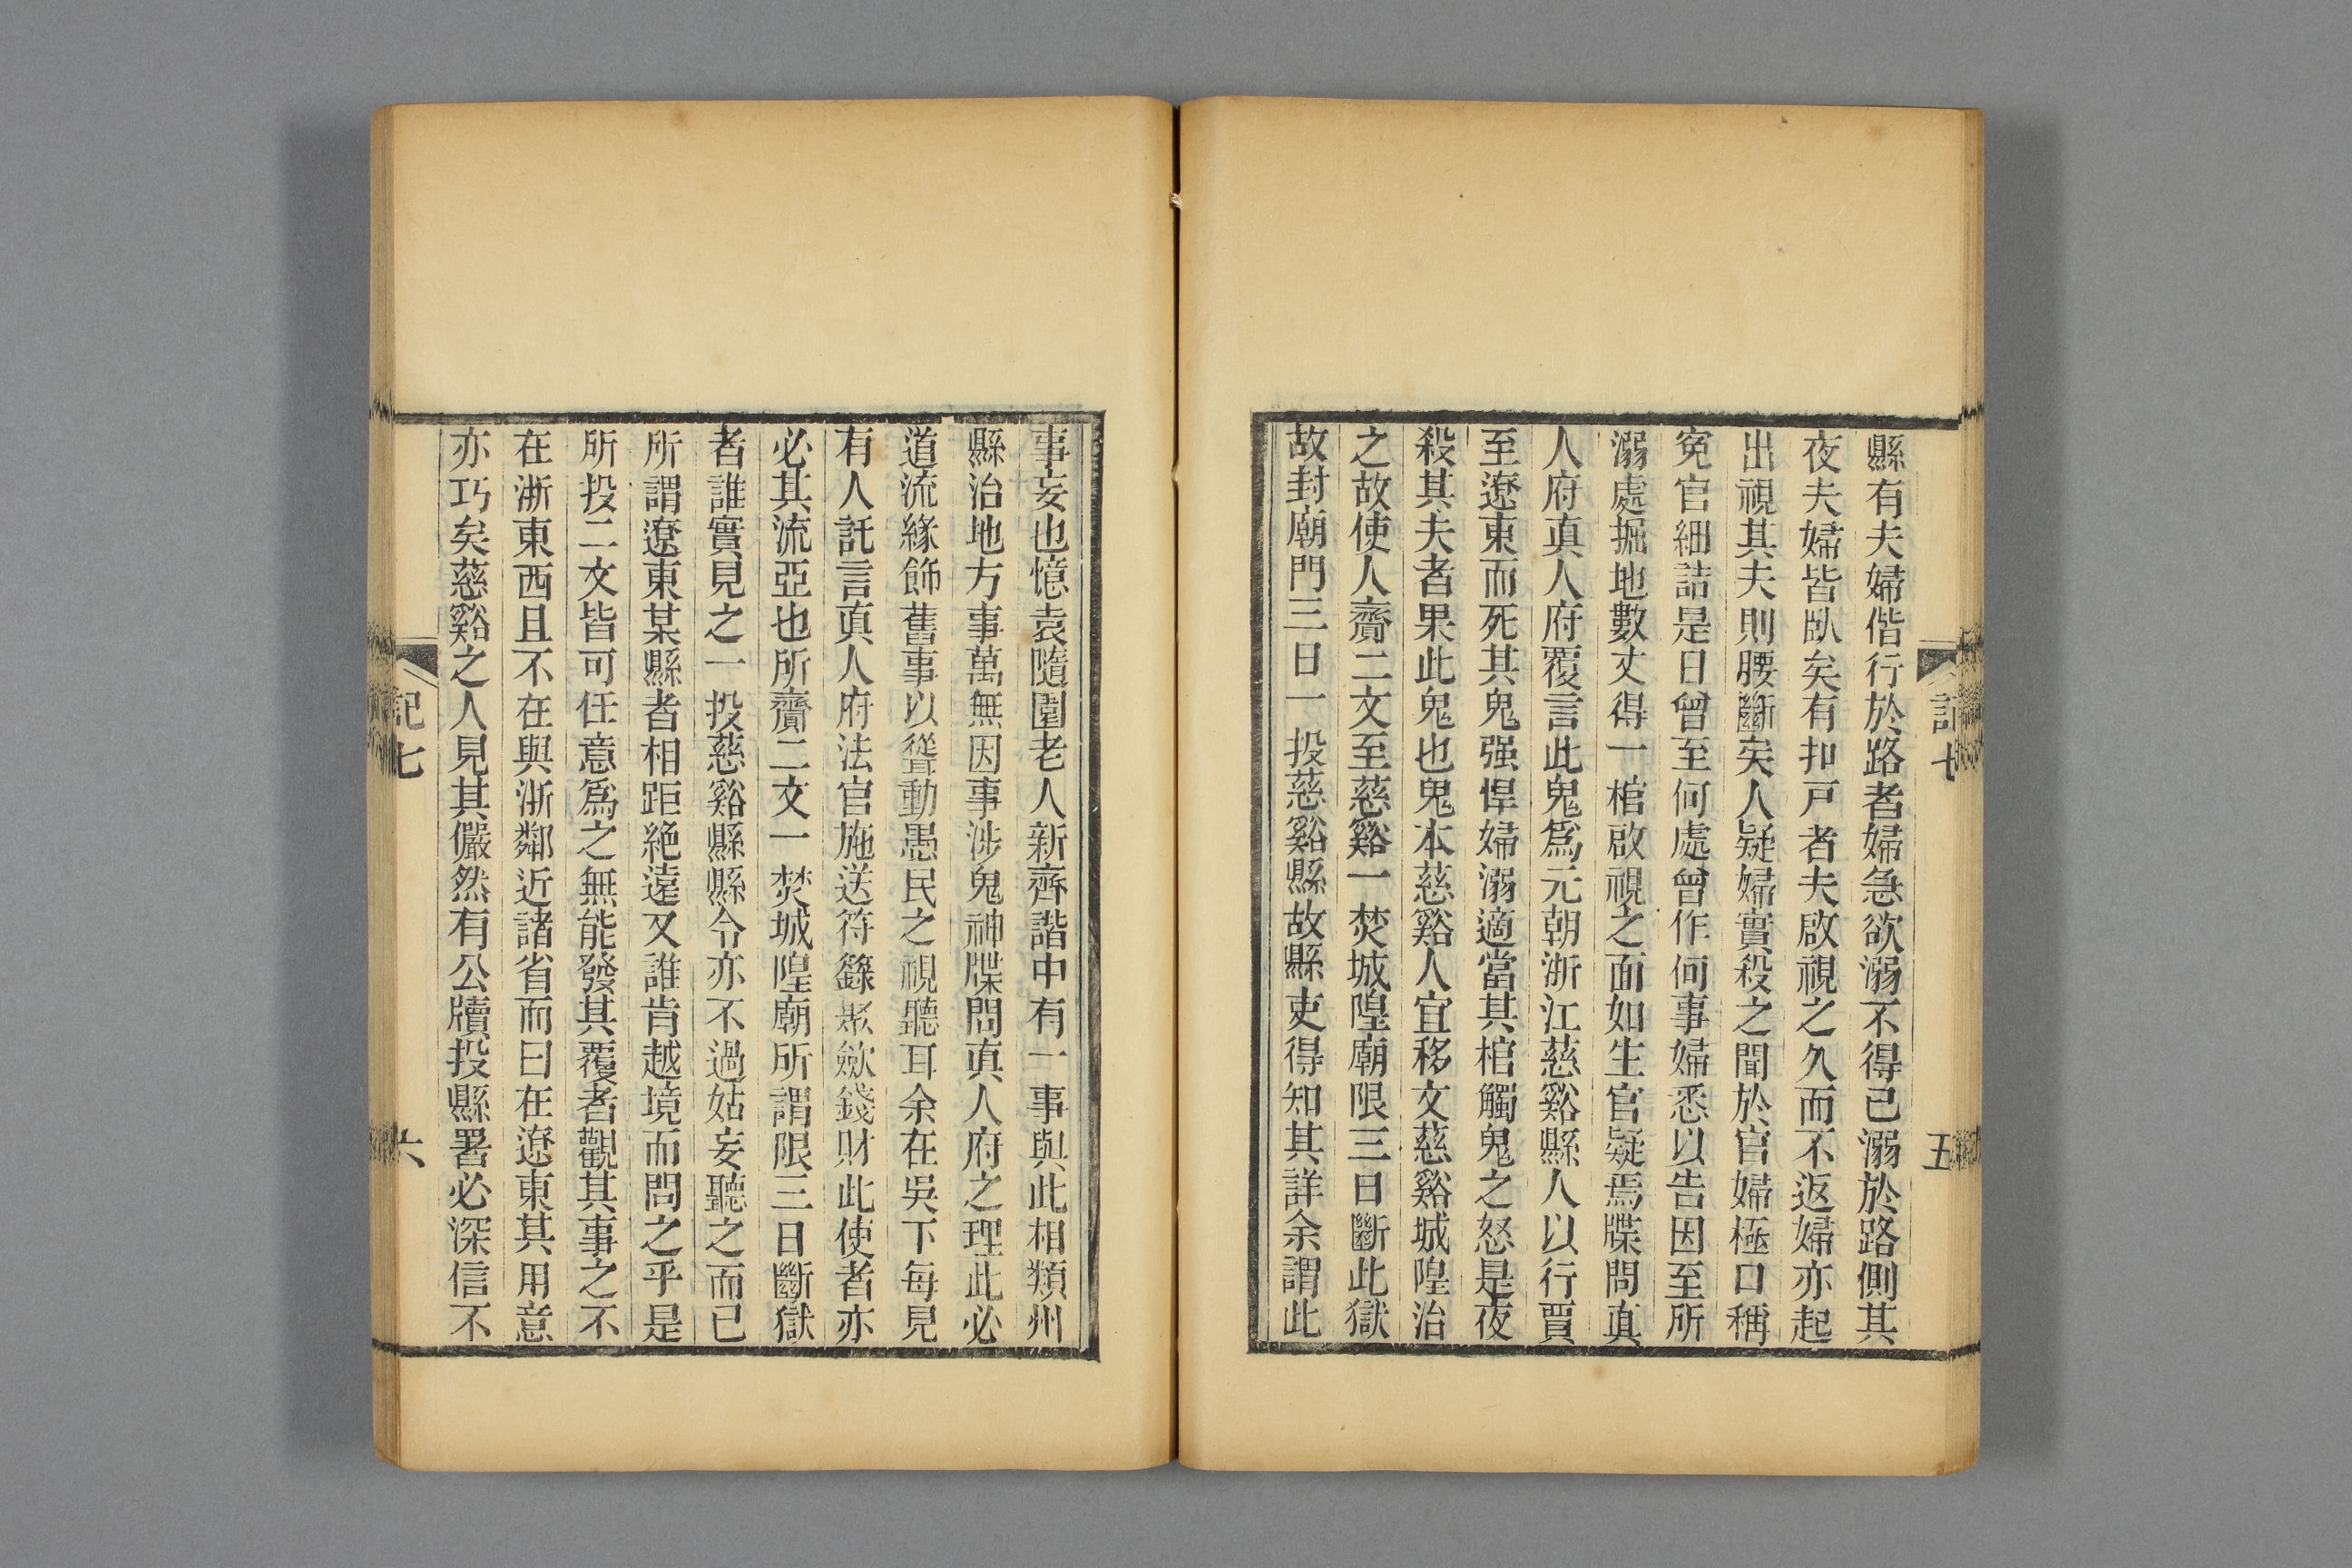 縣有夫婦偕行於路者婦急欲溺不得已溺於路側其
夜夫婦皆臥矣有扣戸者夫啟視之久而不返婦亦起
出視其夫則腰斷矣人疑婦實殺之聞於官婦極口稱
冤官細詰是日曾至何處曾作何事婦悉以告因至所
溺處掘地數丈得一棺啟視之面如生官疑焉牒問眞
人府真人府覆言此鬼爲元朝浙江慈谿縣人以行賈
至遼東而死其鬼强悍婦溺適當其棺觸鬼之怒是夜
殺其夫者果此鬼也鬼本慈谿人宜移文慈谿城隍治
之故使人齎二文至慈谿一焚城隍廟限三日斷此獄
故封廟門三日一投慈谿縣故縣吏得知其詳余謂此
記七
五
事妄也憶袁隨園老人新齊諧中有一事與此相類州
縣治地方事萬無因事涉鬼神牒問眞人府之理此必
道流緣飾舊事以聳動愚民之視聽耳余在吳下每見
有人託言眞人府法官施送符籙聚斂錢財此使者亦
必其流亞也所齎二文一焚城隍廟所謂限三日斷獄
者誰實見之一投慈谿縣縣令亦不過姑妄聽之而已
所謂遼東某縣者相距絶遠又誰肯越境而問之乎是
所投二文皆可任意爲之無能發其覆者觀其事之不
在浙東西且不在與浙鄰近諸省而曰在遼東其用意
亦巧矣慈谿之人見其儼然有公牘投縣署必深信不
記七
六